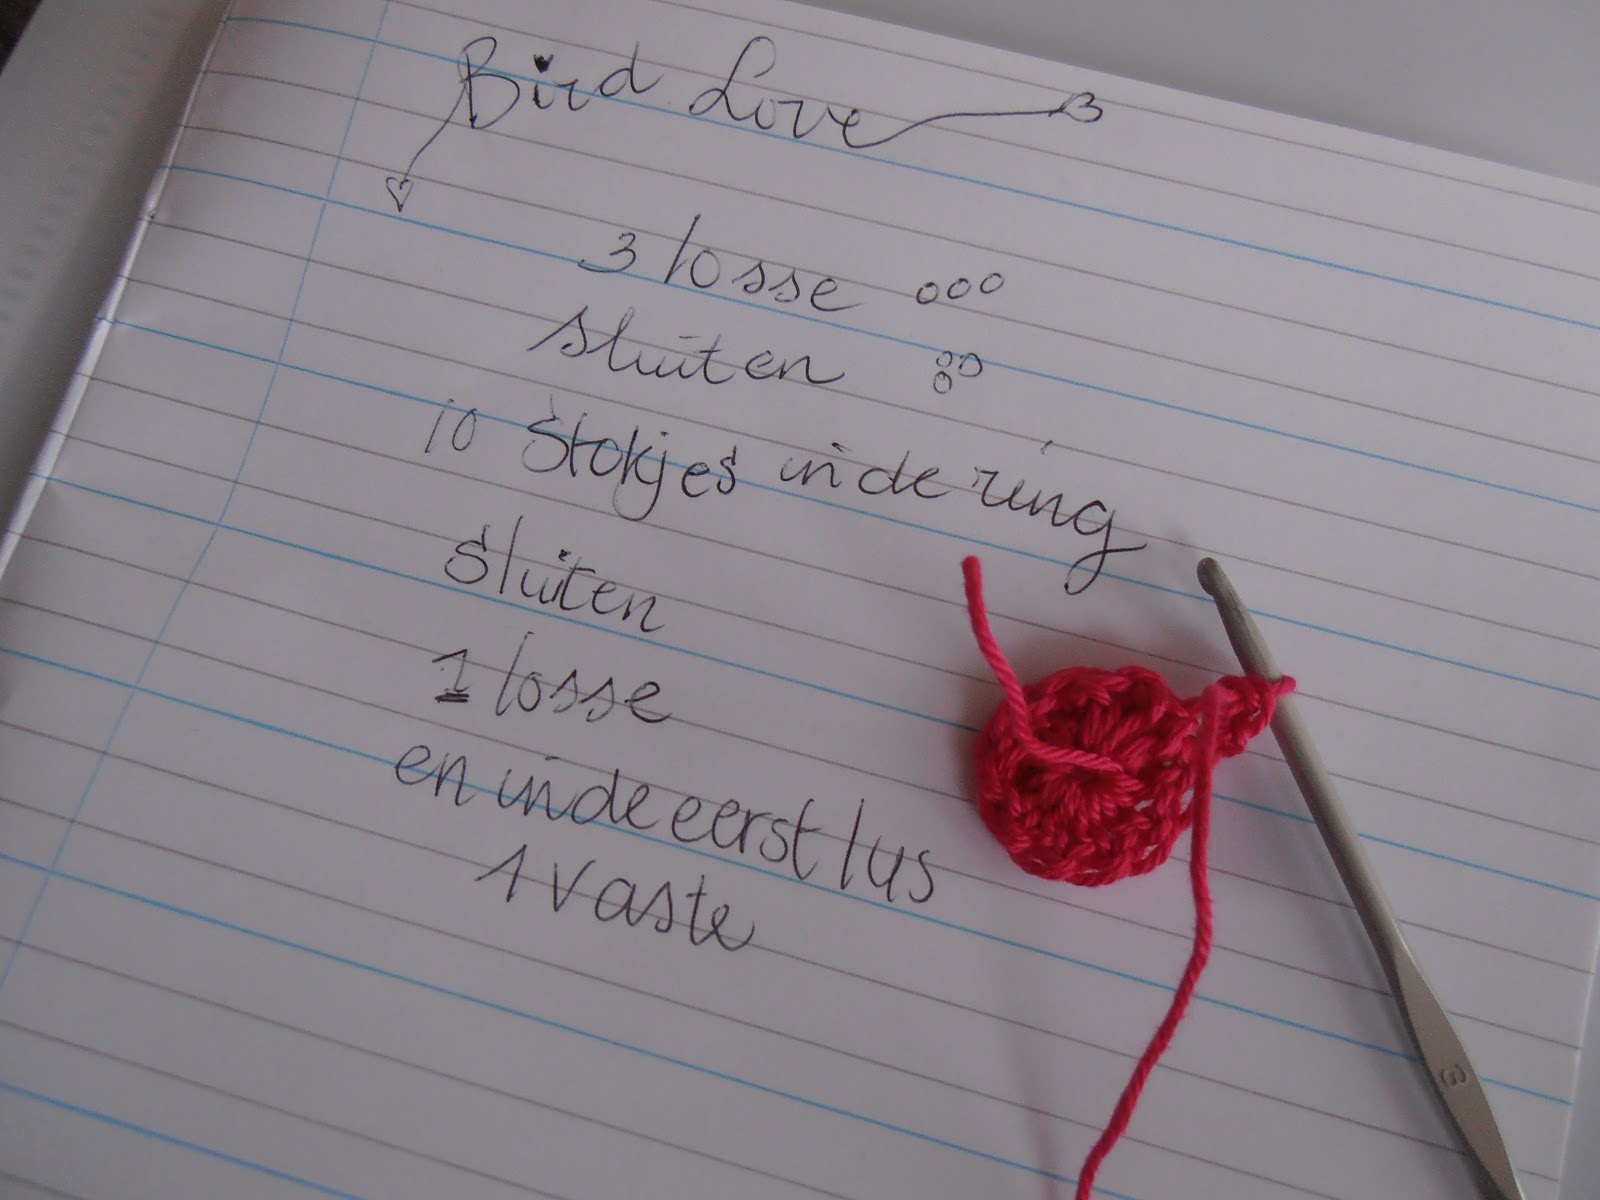 Bird Love
3 losse
sluiten
10 Stokjes in de ring
sluiten
1 losse
en in de eerst lus
1 vaste